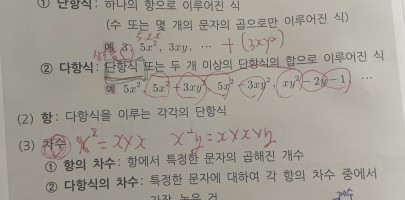 ① 단항식: 하나의 항으로 이루어진 식
(수 또는 몇 개의 문자의 곱으로만 이루어진 식)
예 3, 5x², 3xy, ⋯ + (3xy)
② 다항식: 단항식 또는 두 개 이상의 단항식의 합으로 이루어진 식
예 5x², 5x²+3xy², 5x²-3xy², xy²-2y-1 ⋯
(2) 항: 다항식을 이루는 각각의 단항식
(3) 차수 x²=x×x x²y=x×x×y
① 항의 차수: 항에서 특정한 문자의 곱해진 개수
② 다항식의 차수: 특정한 문자에 대하여 각 항의 차수 중에서
가장 높은 것